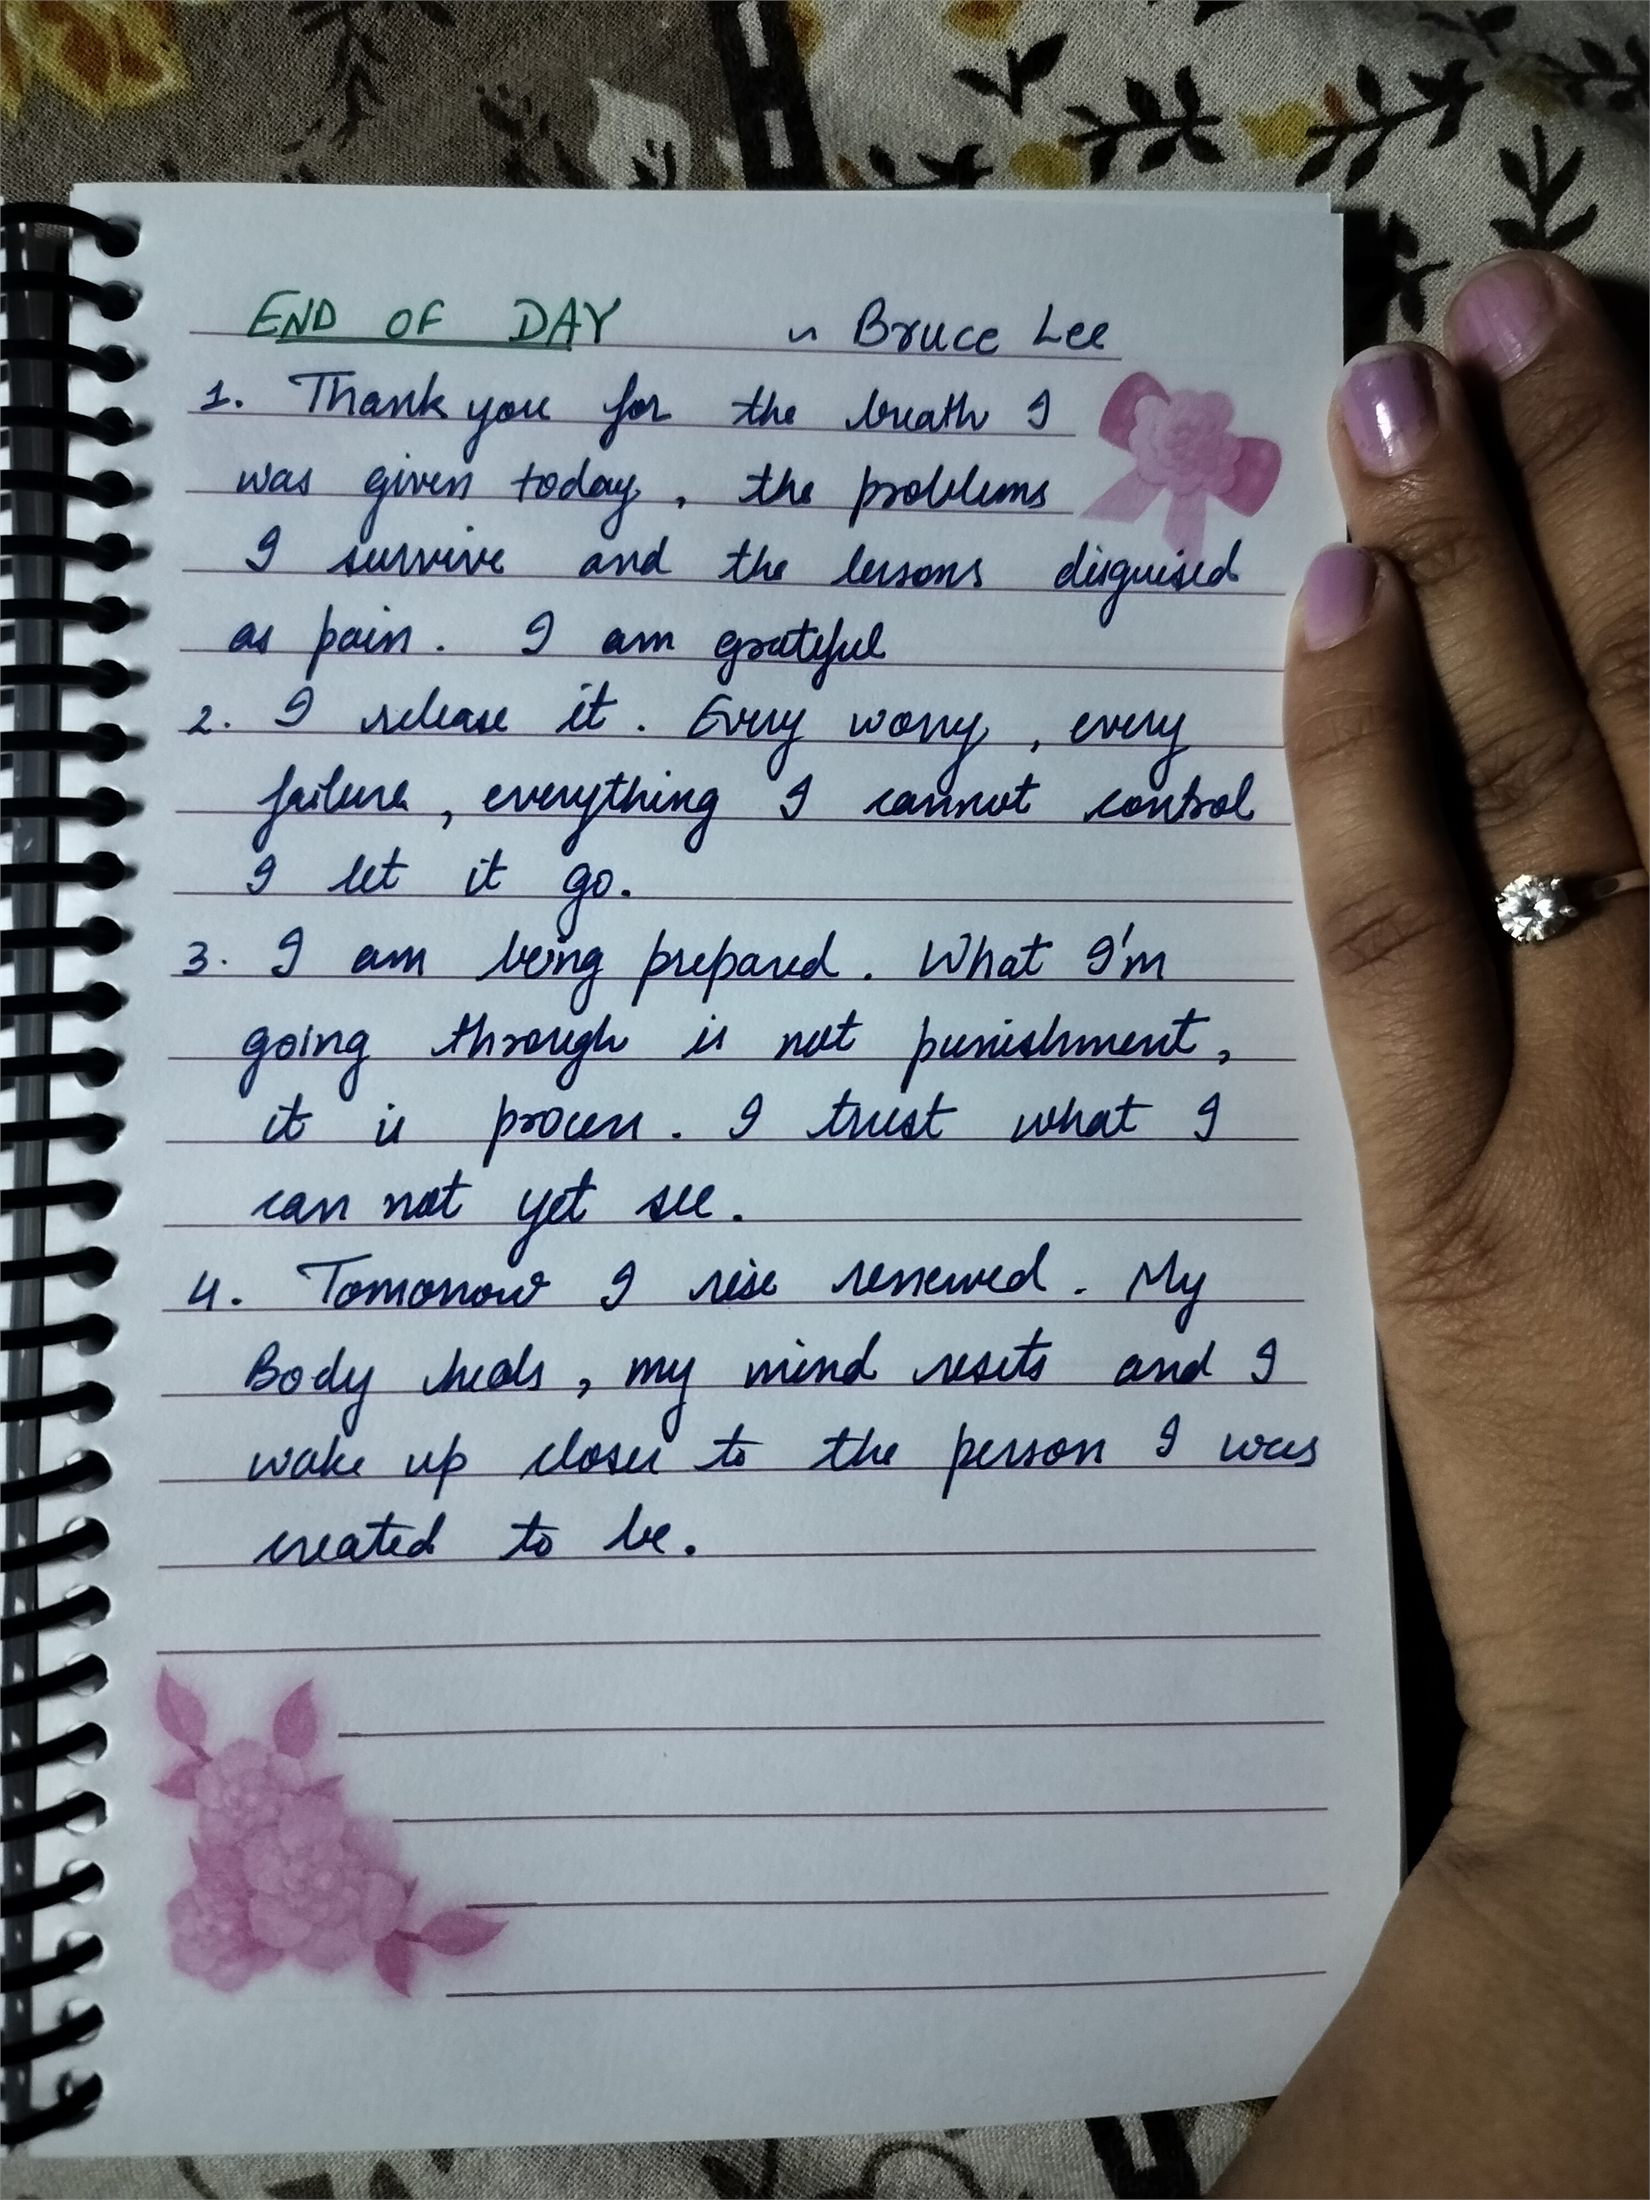 END OF DAY ~ Bruce Lee
1. Thank you for the breath I
was given today, the problems
I survive and the lessons disguised
as pain. I am grateful
2. I release it. Every worry, every
failure, everything I cannot control
I let it go.
3. I am being prepared. What I'm
going through is not punishment,
it is process. I trust what I
can not yet see.
4. Tomorrow I rise renewed. My
Body heals, my mind resets and I
wake up closer to the person I was
created to be.